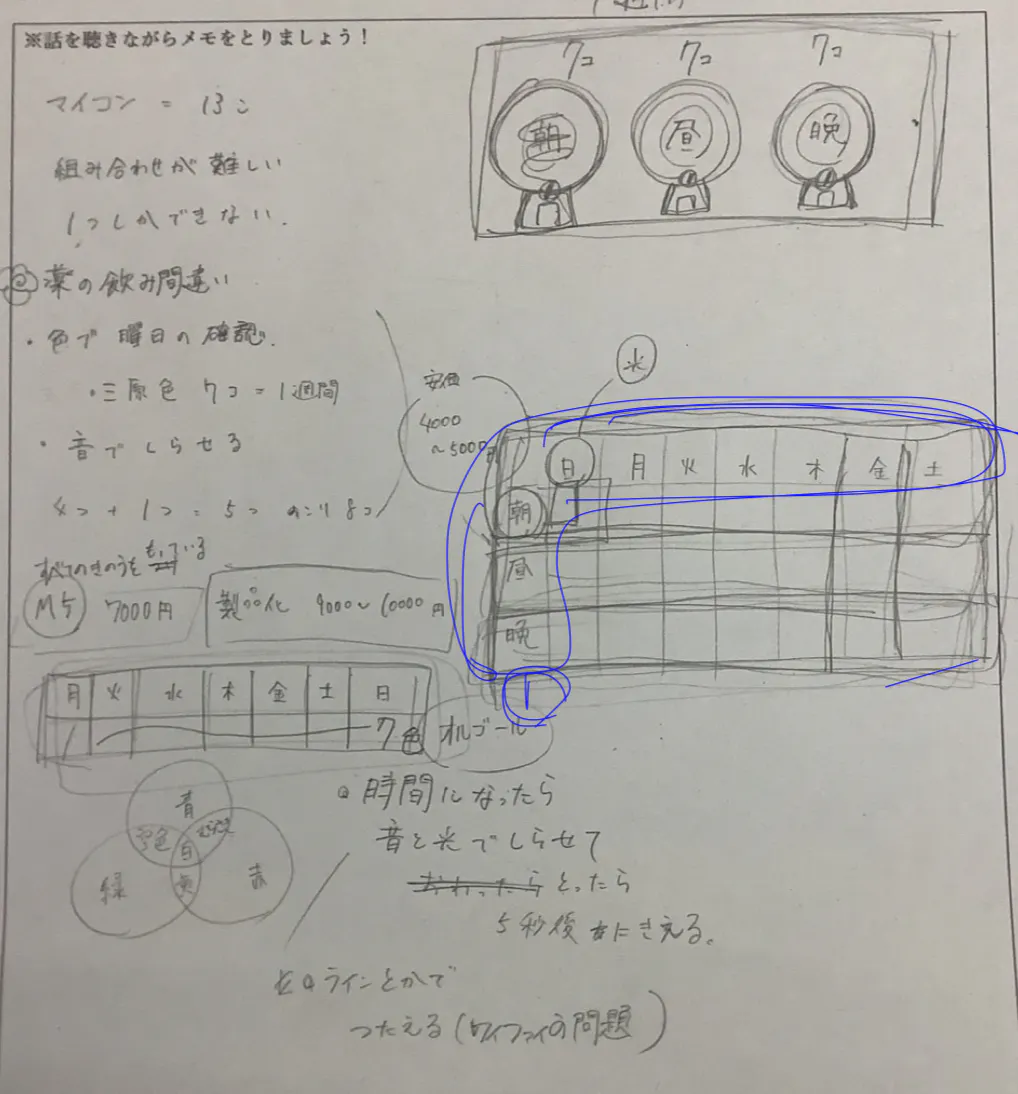 ※話を聴きながらメモをとりましょう！
マイコン = 13こ
組み合わせが難しい
1つしかできない.
薬の飲み間違い
・色で曜日の確認.
・三原色 7コ = 1週間
・音でしらせる
4つ + 1つ = 5つ のこり8コ
すべてのきのうをもっている
Mケ 7000円
製品化 9000〜10000円
月 火 水 木 金 土 日
7色
オルゴール
青
空色
白
緑
黄
赤
7コ 7コ 7コ
朝 昼 晩
安価
4000
〜5000円
光
日 月 火 水 木 金 土
朝
昼
晩
時間になったら
音と光でしらせて
とったら
5秒後 にきえる。
ラインとかで
つたえる(ワイファイの問題)